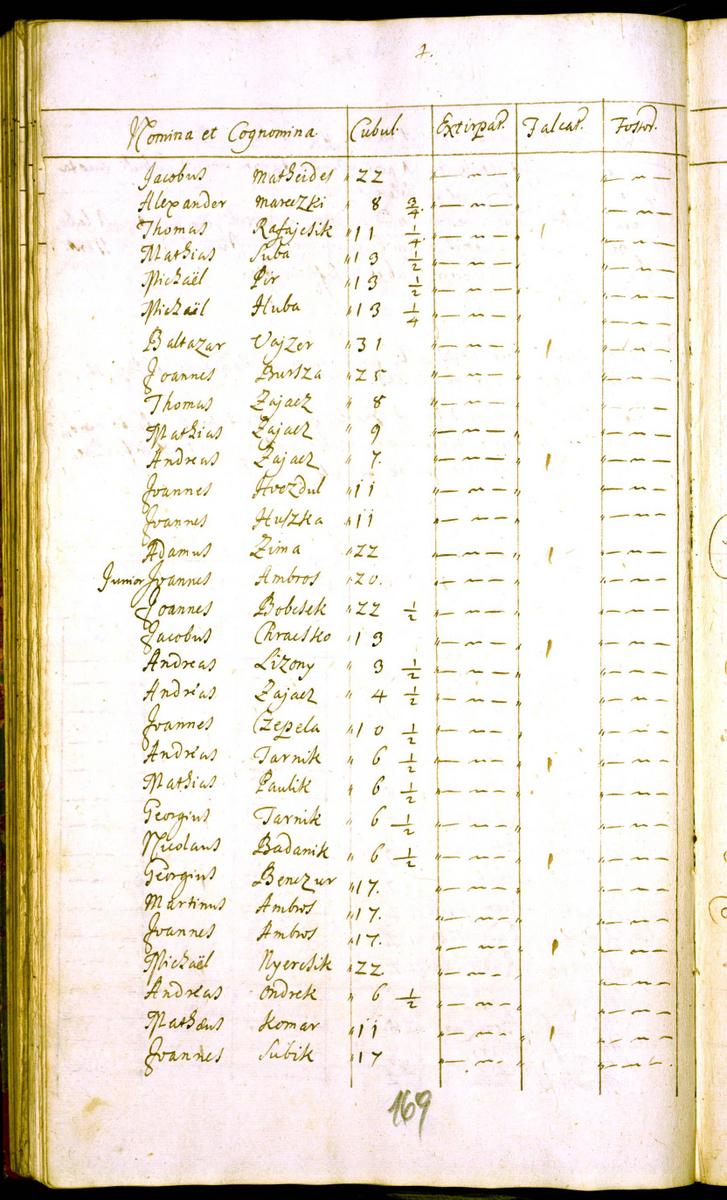 Nomina et Cognomina Cubul. Extirpat. Falcat. Fossor.
Jacobus Matheides " 22 " — " — " " — " —
Alexander Mareczki " 8 3/4 " — " — " " — " —
Thomas Rafajcsik " 11 1/4 " — " — " 1 " — " —
Mathias Suba " 13 1/2 " — " — " " — " —
Michaël Pir " 13 1/2 " — " — " " — " —
Michaël Huba " 13 1/4 " — " — " " — " —
Baltazar Vajzer " 31 " — " — " 1 " — " —
Joannes Bursza " 25 " — " — " " — " —
Thomas Zajacz " 8 " — " — " " — " —
Mathias Zajacz " 9 " — " — " " — " —
Andreas Zajacz " 7. " — " — " 1 " — " —
Joannes Hvozdul " 11 " — " — " " — " —
Joannes Huszka " 11 " — " — " " — " —
Adamus Zima " 22 " — " — " 1 " — " —
Junior Joannes Ambros " 20. " — " — " " — " —
Joannes Bobcsek " 22 1/2 " — " — " " — " —
Jacobus Chracsko " 13 " — " — " 1 " — " —
Andreas Lizony " 3 1/2 " — " — " " — " —
Andreas Zajacz " 4 1/2 " — " — " " — " —
Joannes Czepela " 10 1/2 " — " — " " — " —
Andreas Tarnik " 6 1/2 " — " — " 1 " — " —
Mathias Paulik " 6 1/2 " — " — " " — " —
Georgius Tarnik " 6 1/2 " — " — " " — " —
Nicolaus Badanik " 6 1/2 " — " — " 1 " — " —
Georgius Benczur " 17. " — " — " " — " —
Martinus Ambros " 17. " — " — " " — " —
Joannes Ambros " 17. " — " — " 1 " — " —
Michaël Nyercsik " 22 " — " — " " — " —
Andreas Ondrek " 6 1/2 " — " — " " — " —
Mathæus Komar " 11 " — " — " 1 " — " —
Joannes Subik " 17 " — " — " " — " —
169